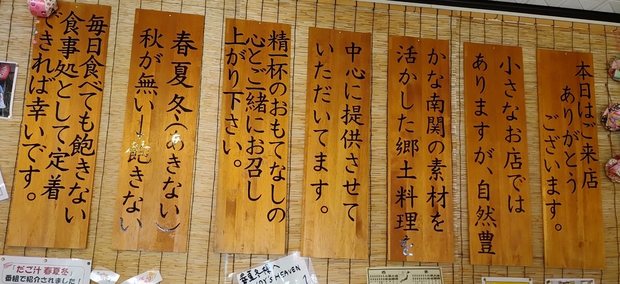 本日はご来店
ありがとう
ございます。
小さなお店では
ありますが、自然豊
かな南関の素材を
活かした郷土料理を
中心に提供させて
いただいてます。
精一杯のおもてなしの
心とご一緒にお召し
上がり下さい。
春夏冬(あきない)
秋が無い→飽きない
毎日食べても飽きない
食事処として定着
できれば幸いです。
「だご汁 春夏冬」
番組で紹介されました!
春夏冬様へ